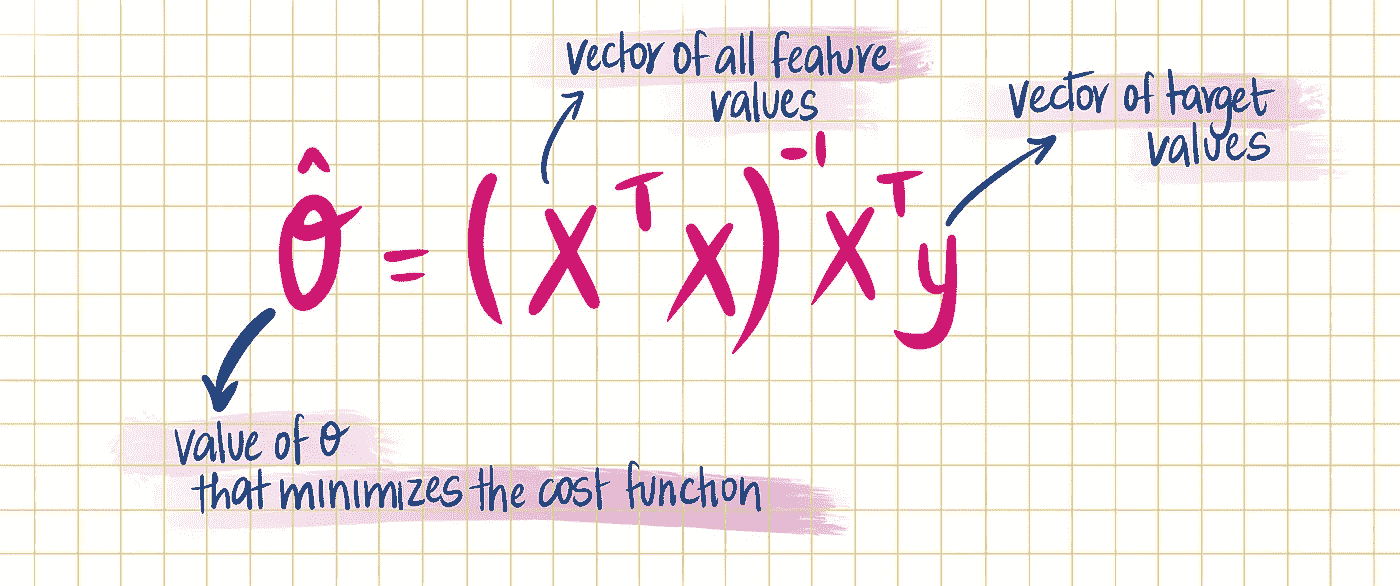 vector of all feature
values
vector of target
values
θ̂ = (XᵀX)⁻¹Xᵀy
value of θ
that minimizes the cost function